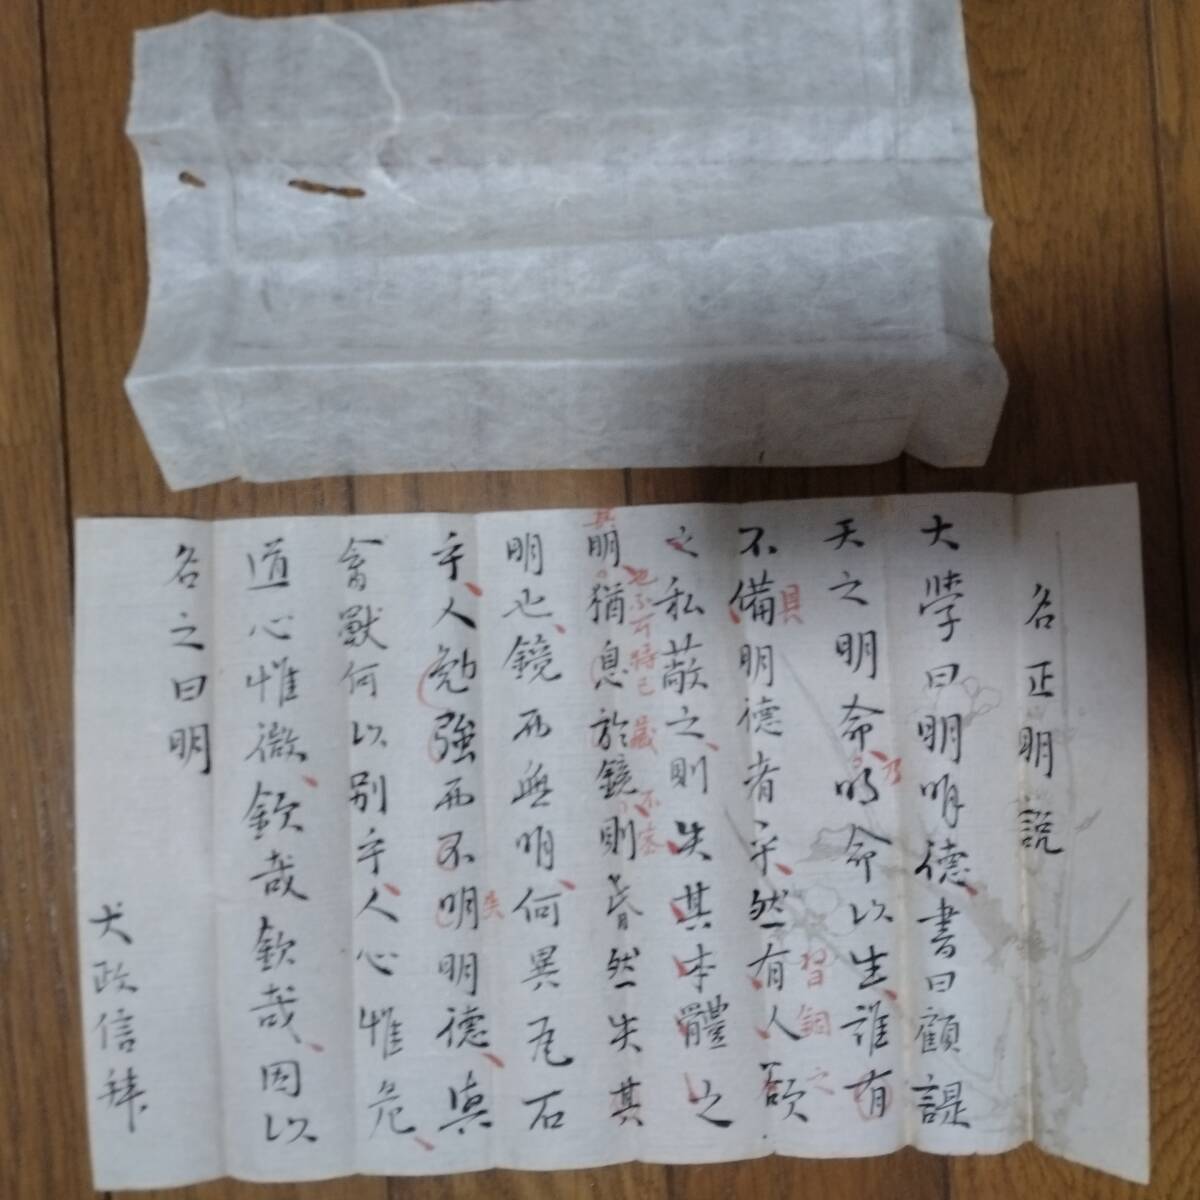 名正明説
大學曰明明德書曰顧諟
天之明命明命以生誰有
乃
不備明德者乎然有人欲
具
習錮之
之私蔽之則失其本體之
明猶息於鏡則昏然失其
其
也不可
明也鏡而無明何異瓦石
乎人勉強而不明明德真
矣
禽獸何以別乎人心惟危
道心惟微欽哉欽哉因以
名之曰明
犬政信拜